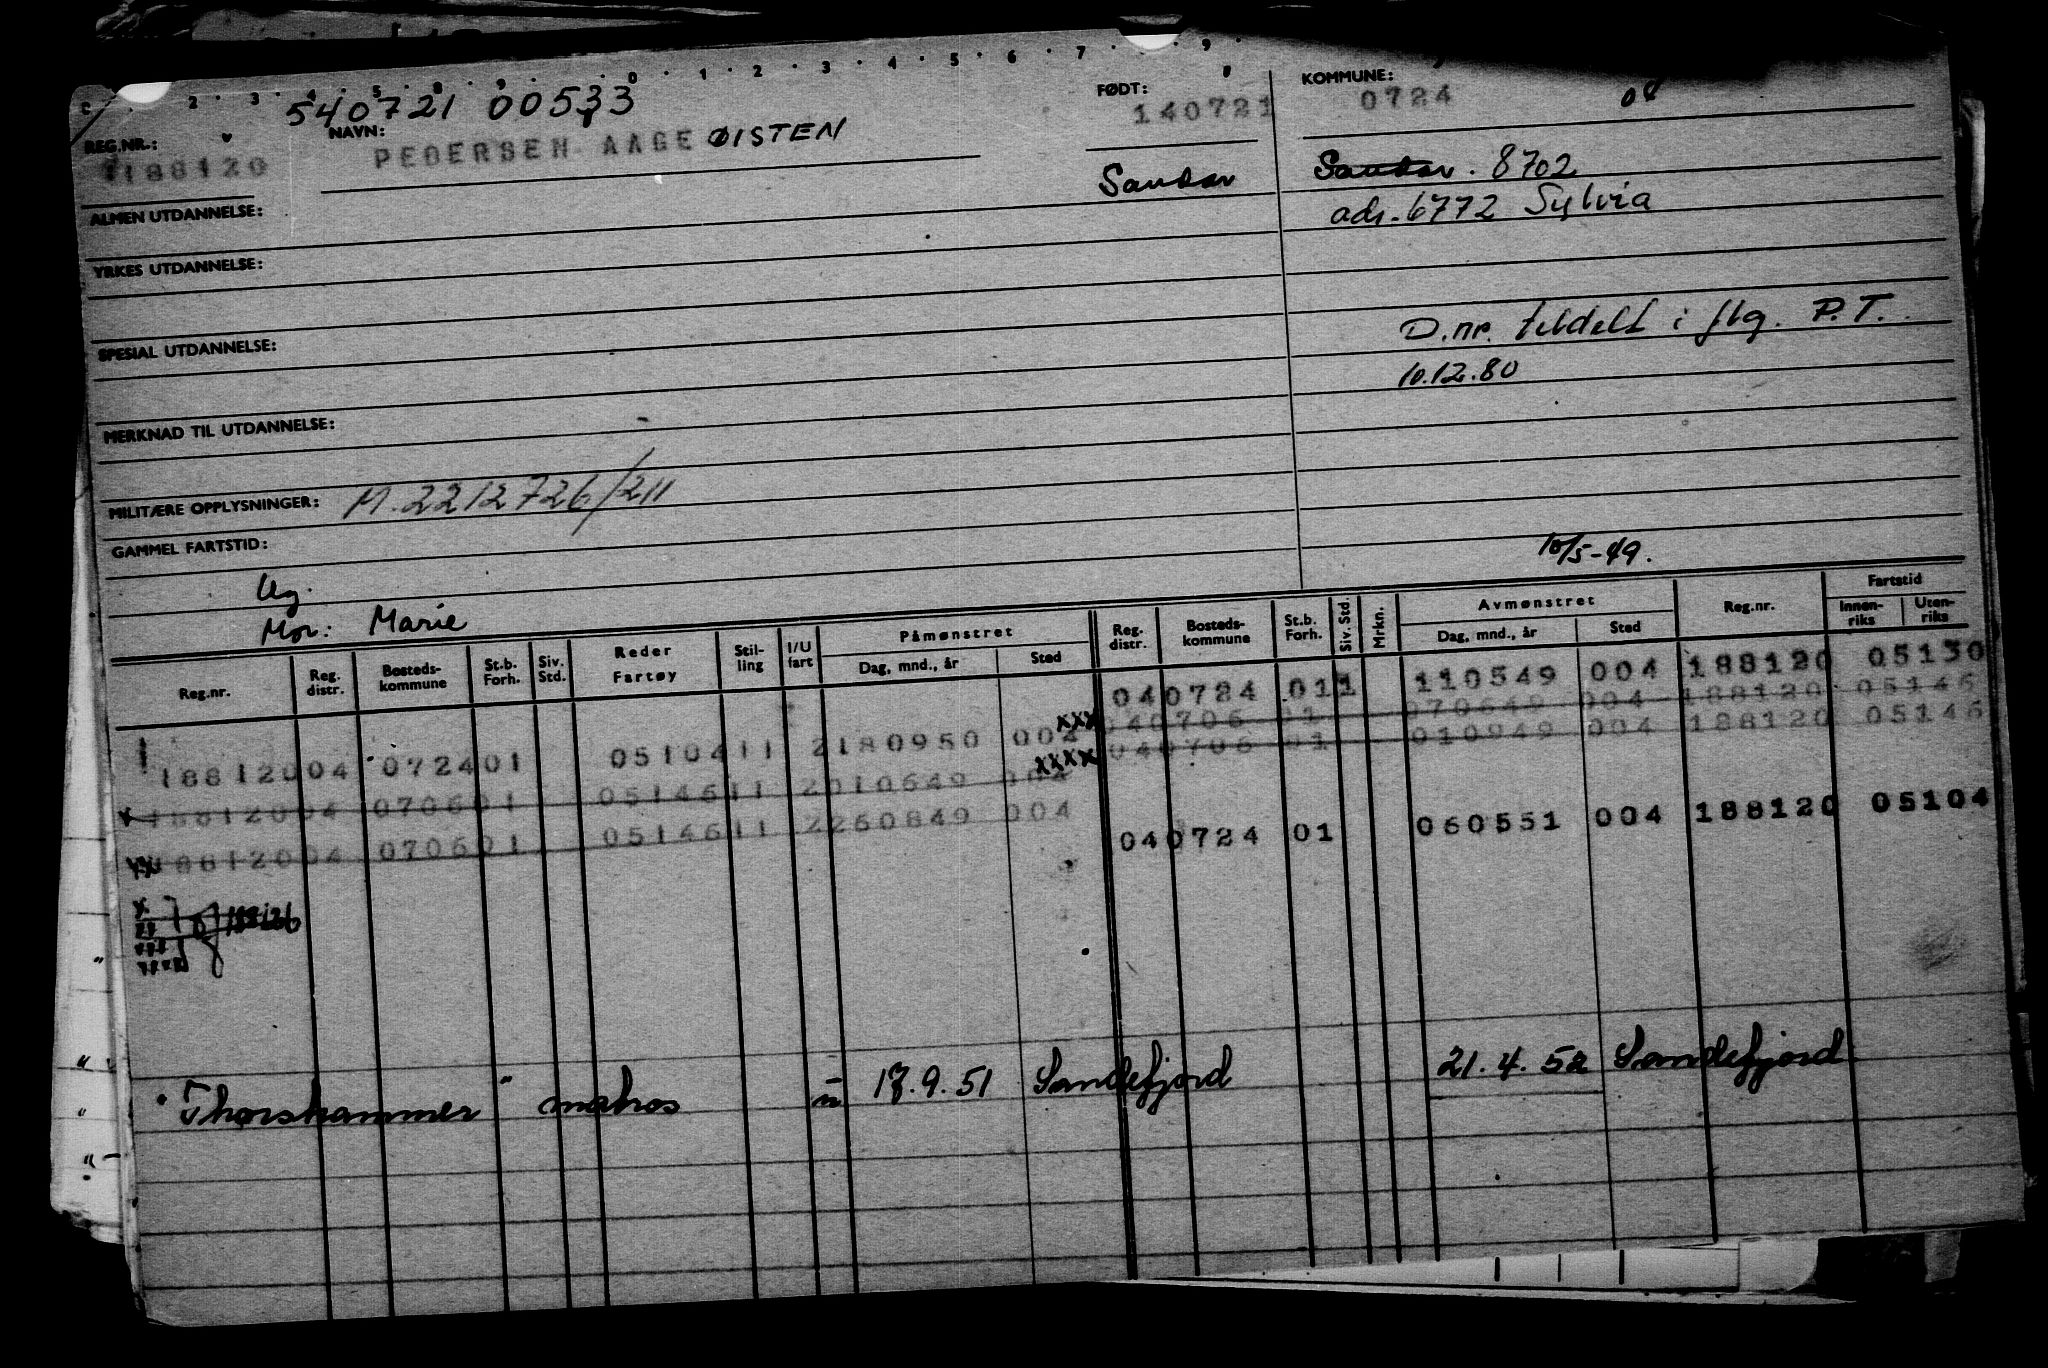 540721 00533
REG.NR.: 188120
NAVN: PEDERSEN AAGE ØISTEN
FØDT: 140721
Sandar
KOMMUNE: 0724 08
Sandar. 8702
adr. 6772 Sylvia
ALMEN UTDANNELSE:
YRKES UTDANNELSE:
SPESIAL UTDANNELSE:
D.nr. tildelt i flg. P.T.
10.12.80
MERKNAD TIL UTDANNELSE:
MILITÆRE OPPLYSNINGER: M.2212726/211
GAMMEL FARTSTID:
10/5-49.
Ug.
Mor: Marie
Reg.nr. Reg. distr. Bosteds-kommune St.b. Forh. Siv. Std. Reder Fartøy Stil-ling I/U fart Påmønstret Dag, mnd., år Sted Reg. distr. Bosteds-kommune St.b. Forh. Siv. Std. Mrkn. Avmønstret Dag, mnd., år Sted Reg.nr. Fartstid Innen-riks Uten-riks
040724 011 110549 004 188120 05130
xxx 040706 01 070649 004 188120 05146
xxxx 040706 01 010949 004 188120 05146
188120 04 0724 01 0510411 2180950 004
x 188120 04 0706 01 0514611 2010649 004
xx 188120 04 0706 01 0514611 2260849 004
040724 01 060551 004 188120 05104
x
xx
xxx
xxxx
"Thorshammer" matros u 17.9.51 Sandefjord 21.4.52 Sandefjord